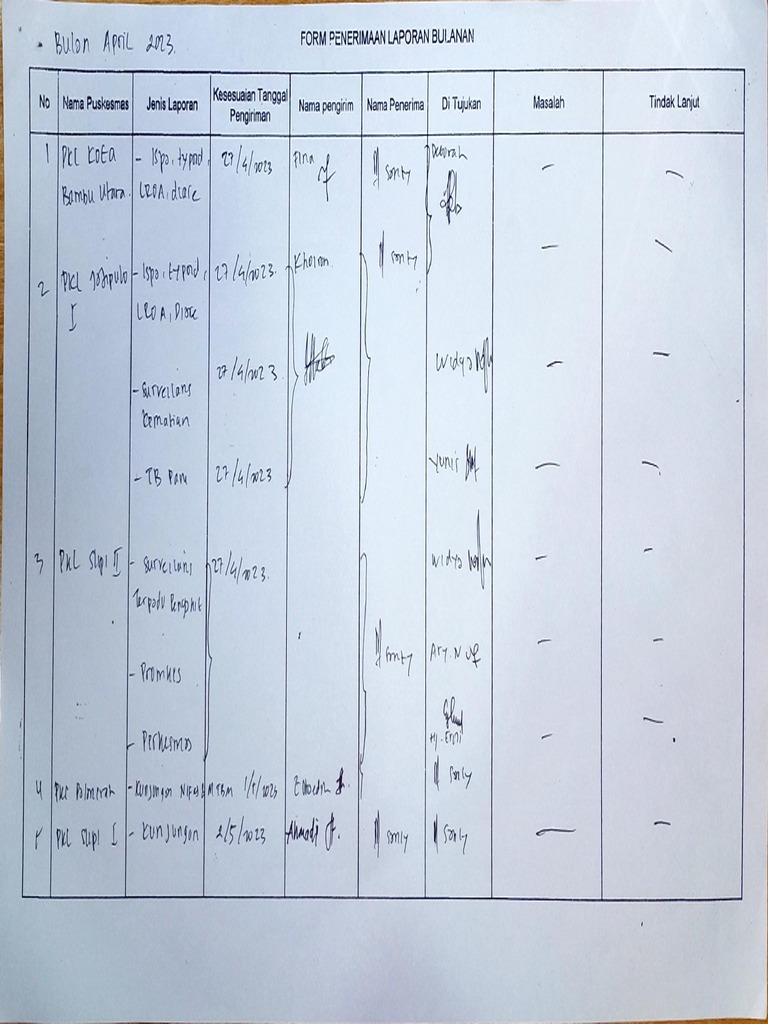 FORM PENERIMAAN LAPORAN BULANAN
Bulan April 2023.
No Nama Puskesmas Jenis Laporan Kesesuaian Tanggal Pengiriman Nama pengirim Nama Penerima Di Tujukan Masalah Tindak Lanjut
1 PKL Kota - Ispa, typoid, 27/4/2023 Fina Sonty Deborah — —
Bambu Utara. LROA, diare
— —
2 PKL Jatipulo - Ispa, typoid, 27/4/2023. Khoiron Sonty
I LROA, Diare
27/4/2023 Widya — —
- Surveilans
Kematian
- TB Paru 27/4/2023 Yunis — —
3 PKL Slipi II - Surveilans 27/4/2023. Widya — —
Terpadu Penyakit
- Promkes Sonty Ary. N — —
- Perkesmas Hj. Erni — —
4 PKC Palmerah - Kunjungan Nifas & MTBM 1/5/2023 Sonty
5 PKL Slipi I - Kunjungan 2/5/2023 Ahmadi Sonty Sonty — —